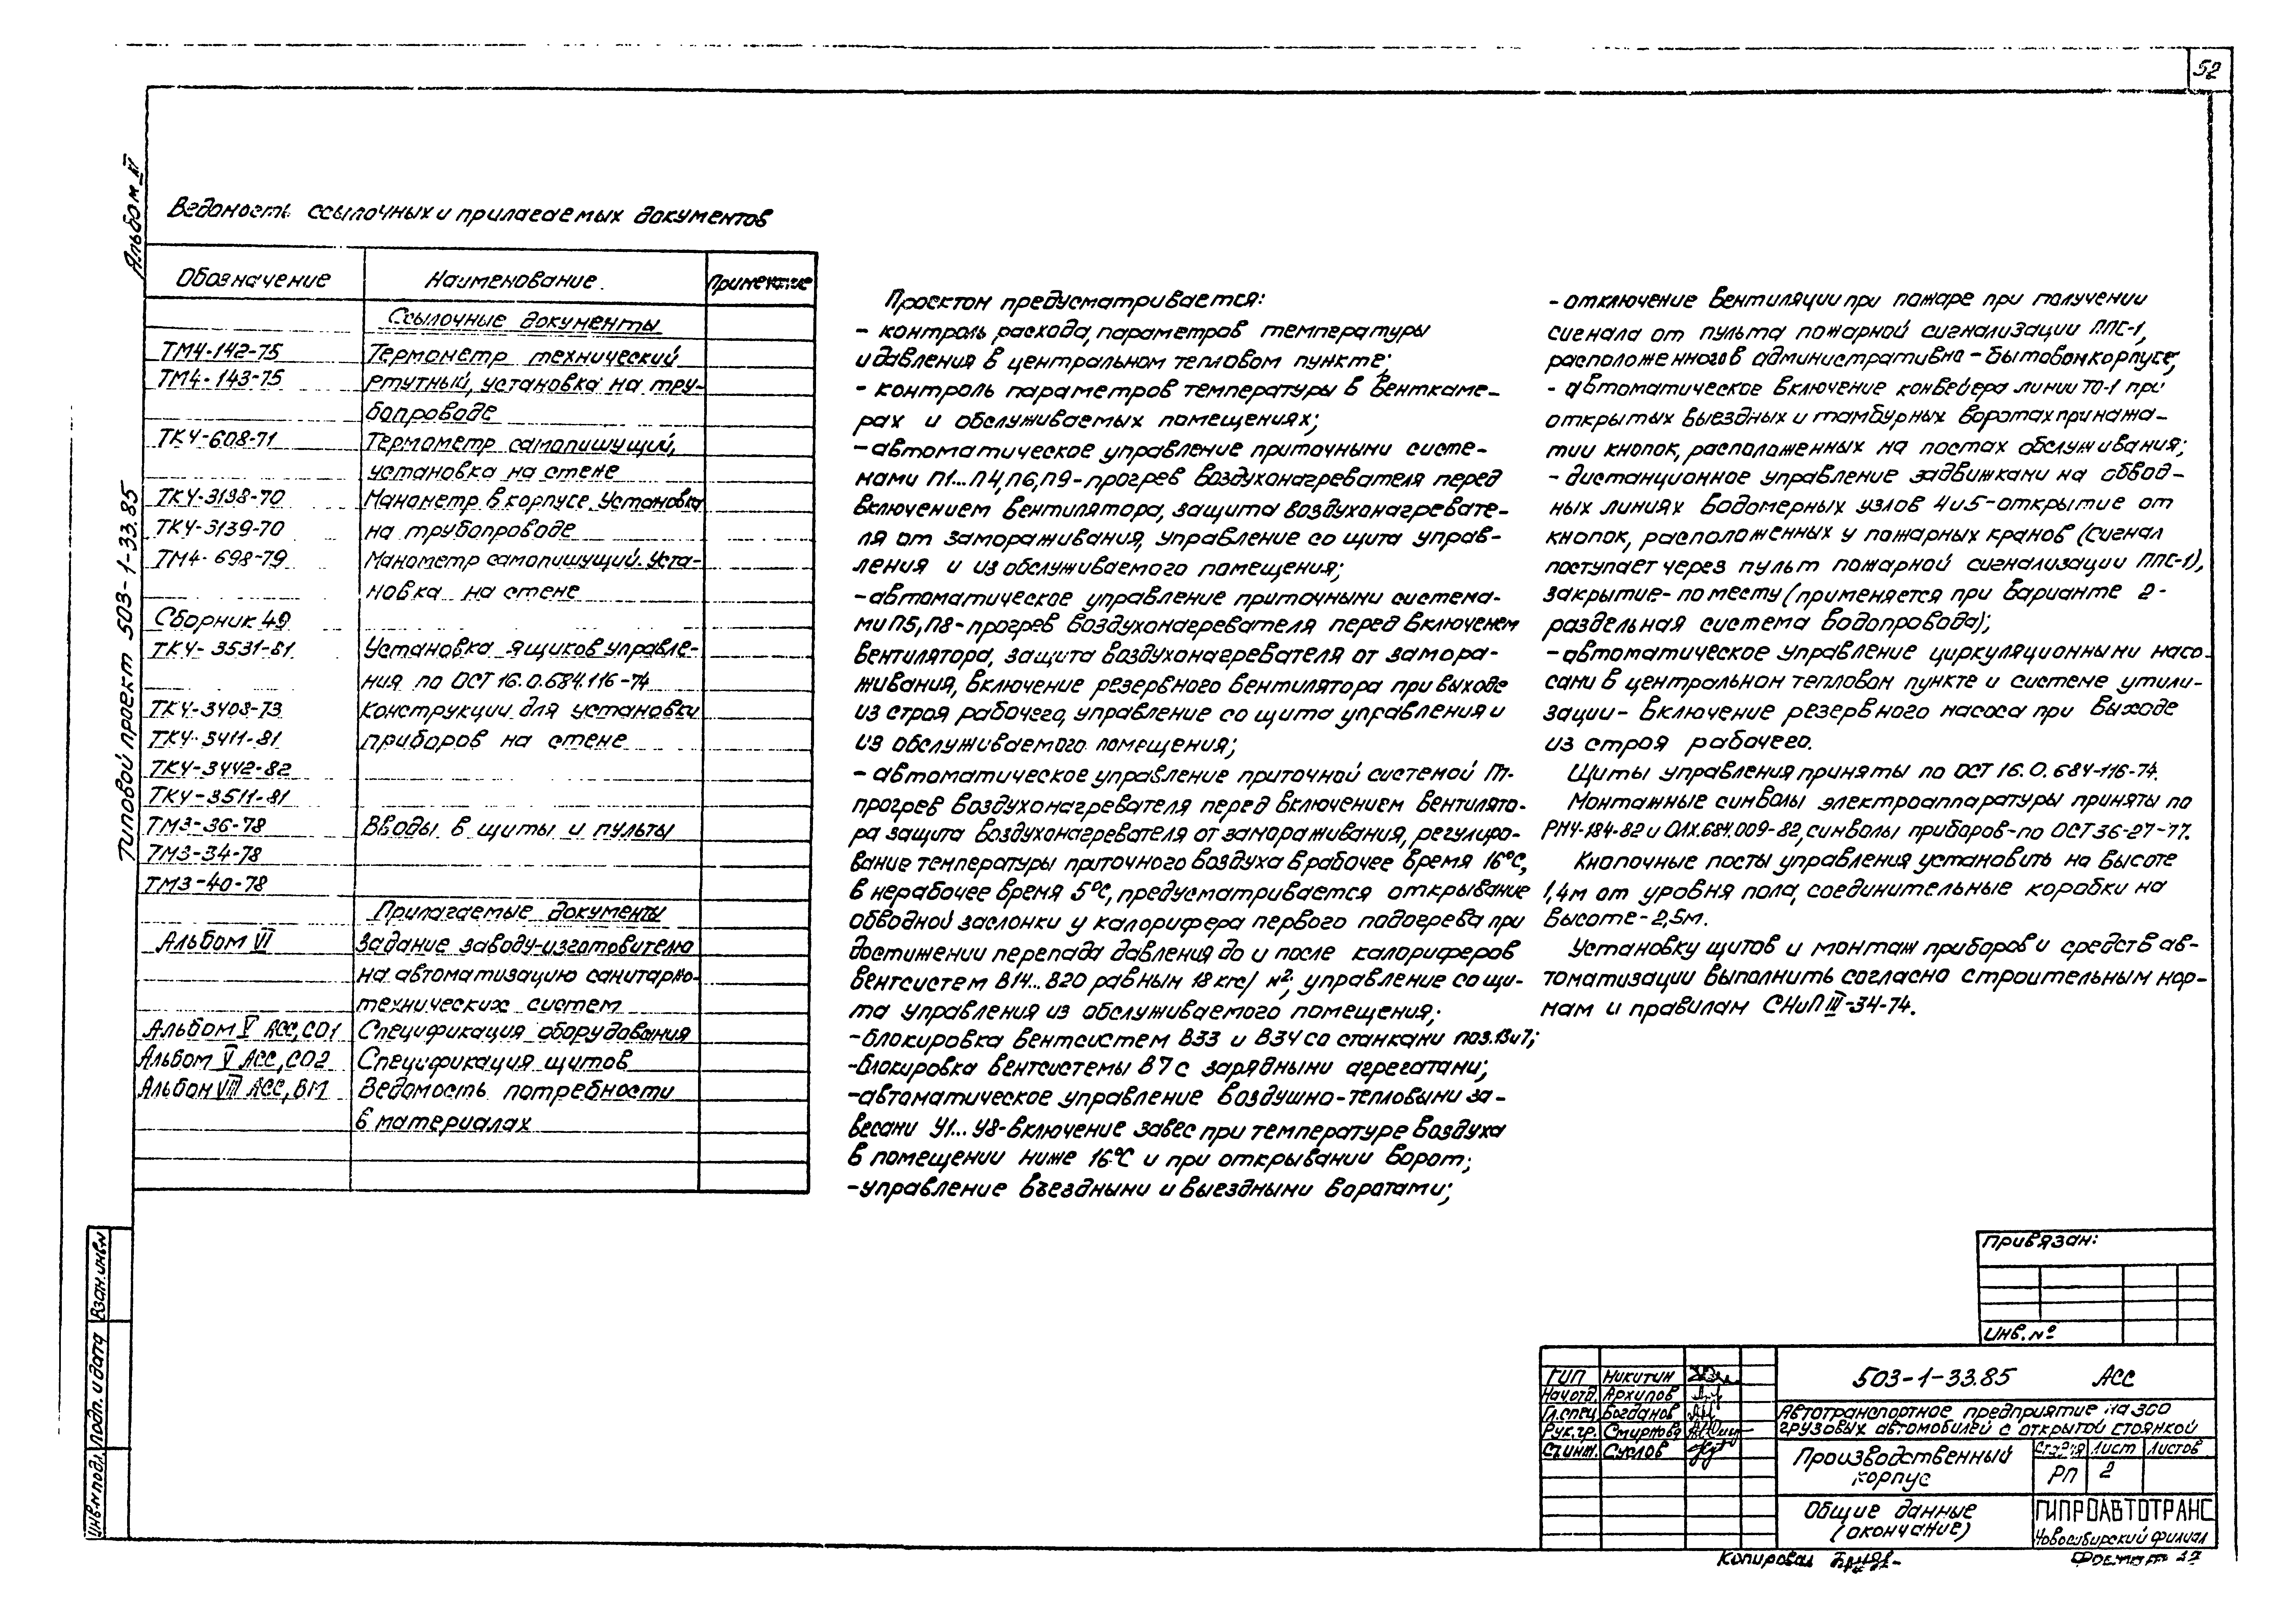 52
Альбом XI
Типовой проект 503-1-33.85
Ведомость ссылочных и прилагаемых документов
Обозначение Наименование Примечание
Ссылочные документы
ТМ4-142-75 Термометр технический
ТМ4-143-75 ртутный, установка на тру-
бопроводе
ТК4-608-71 Термометр самопишущий,
установка на стене
ТК4-3138-70 Манометр в корпусе. Установка
ТК4-3139-70 на трубопроводе
ТМ4-698-79 Манометр самопишущий. Уста-
новка на стене
Сборник 49
ТК4-3531-81 Установка ящиков управле-
ния по ОСТ 16.0.684.116-74
ТК4-3408-73 Конструкции для установки
ТК4-3411-81 приборов на стене
ТК4-3442-82
ТК4-3511-81
ТМ3-36-78 Вводы в щиты и пульты
ТМ3-34-78
ТМ3-40-78
Прилагаемые документы
Альбом VI Задание заводу-изготовителю
на автоматизацию санитарно-
технических систем
Альбом V АСС, СО1 Спецификация оборудования
Альбом V АСС, СО2 Спецификация щитов
Альбом VIII АСС, ВМ Ведомость потребности
в материалах
Проектом предусматривается:
- контроль расхода, параметров температуры
и давления в центральном тепловом пункте;
- контроль параметров температуры в венткаме-
рах и обслуживаемых помещениях;
- автоматическое управление приточными систе-
мами П1...П4, П6, П9 - прогрев воздухонагревателя перед
включением вентилятора, защита воздухонагревате-
ля от замораживания, управление со щита управ-
ления и из обслуживаемого помещения;
- автоматическое управление приточными система-
ми П5, П8 - прогрев воздухонагревателя перед включением
вентилятора, защита воздухонагревателя от замора-
живания, включение резервного вентилятора при выходе
из строя рабочего, управление со щита управления и
из обслуживаемого помещения;
- автоматическое управление приточной системой П7-
прогрев воздухонагревателя перед включением вентилято-
ра защита воздухонагревателя от замораживания, регулиро-
вание температуры приточного воздуха в рабочее время 16°С,
в нерабочее время 5°С, предусматривается открывание
обводной заслонки у калорифера первого подогрева при
достижении перепада давления до и после калориферов
вентсистем В14...В20 равным 18 кгс/м²; управление со щи-
та управления из обслуживаемого помещения;
- блокировка вентсистем В33 и В34 со станками поз. 13 и 7;
- блокировка вентсистемы В7 с зарядными агрегатами;
- автоматическое управление воздушно-тепловыми за-
весами У1...У8 - включение завес при температуре воздуха
в помещении ниже 16°С и при открывании ворот;
- управление въездными и выездными воротами;
- отключение вентиляции при пожаре при получении
сигнала от пульта пожарной сигнализации ППС-1,
расположенного в административно-бытовом корпусе;
- автоматическое включение конвейера линии ТО-1 при
открытых выездных и тамбурных воротах при нажа-
тии кнопок, расположенных на постах обслуживания;
- дистанционное управление задвижками на обвод-
ных линиях водомерных узлов 4 и 5 - открытие от
кнопок, расположенных у пожарных кранов (сигнал
поступает через пульт пожарной сигнализации ППС-1),
закрытие - по месту (применяется при варианте 2-
раздельная система водопровода);
- автоматическое управление циркуляционными насо-
сами в центральном тепловом пункте и системе утили-
зации - включение резервного насоса при выходе
из строя рабочего.
Щиты управления приняты по ОСТ 16.0.684-116-74.
Монтажные символы электроаппаратуры приняты по
РМ4-184-82 и ОЛХ.684.009-82, символы приборов - по ОСТ 36-27-77.
Кнопочные посты управления установить на высоте
1,4м от уровня пола, соединительные коробки на
высоте - 2,5м.
Установку щитов и монтаж приборов и средств ав-
томатизации выполнить согласно строительным нор-
мам и правилам СНиП III-34-74.
Привязан:
Инв. №
ГИП Никитин
Нач.отд. Архипов
Гл.спец. Богданов
Рук.гр. Смирнова
Ст.инж. Суслов
503-1-33.85 АСС
Автотранспортное предприятие на 300
грузовых автомобилей с открытой стоянкой
Производственный
корпус
Стадия Лист Листов
РП 2
Общие данные
(окончание)
ГИПРОАВТОТРАНС
Новосибирский филиал
Копировал
Формат
Инв.№ подл. Подп. и дата Взам.инв.№